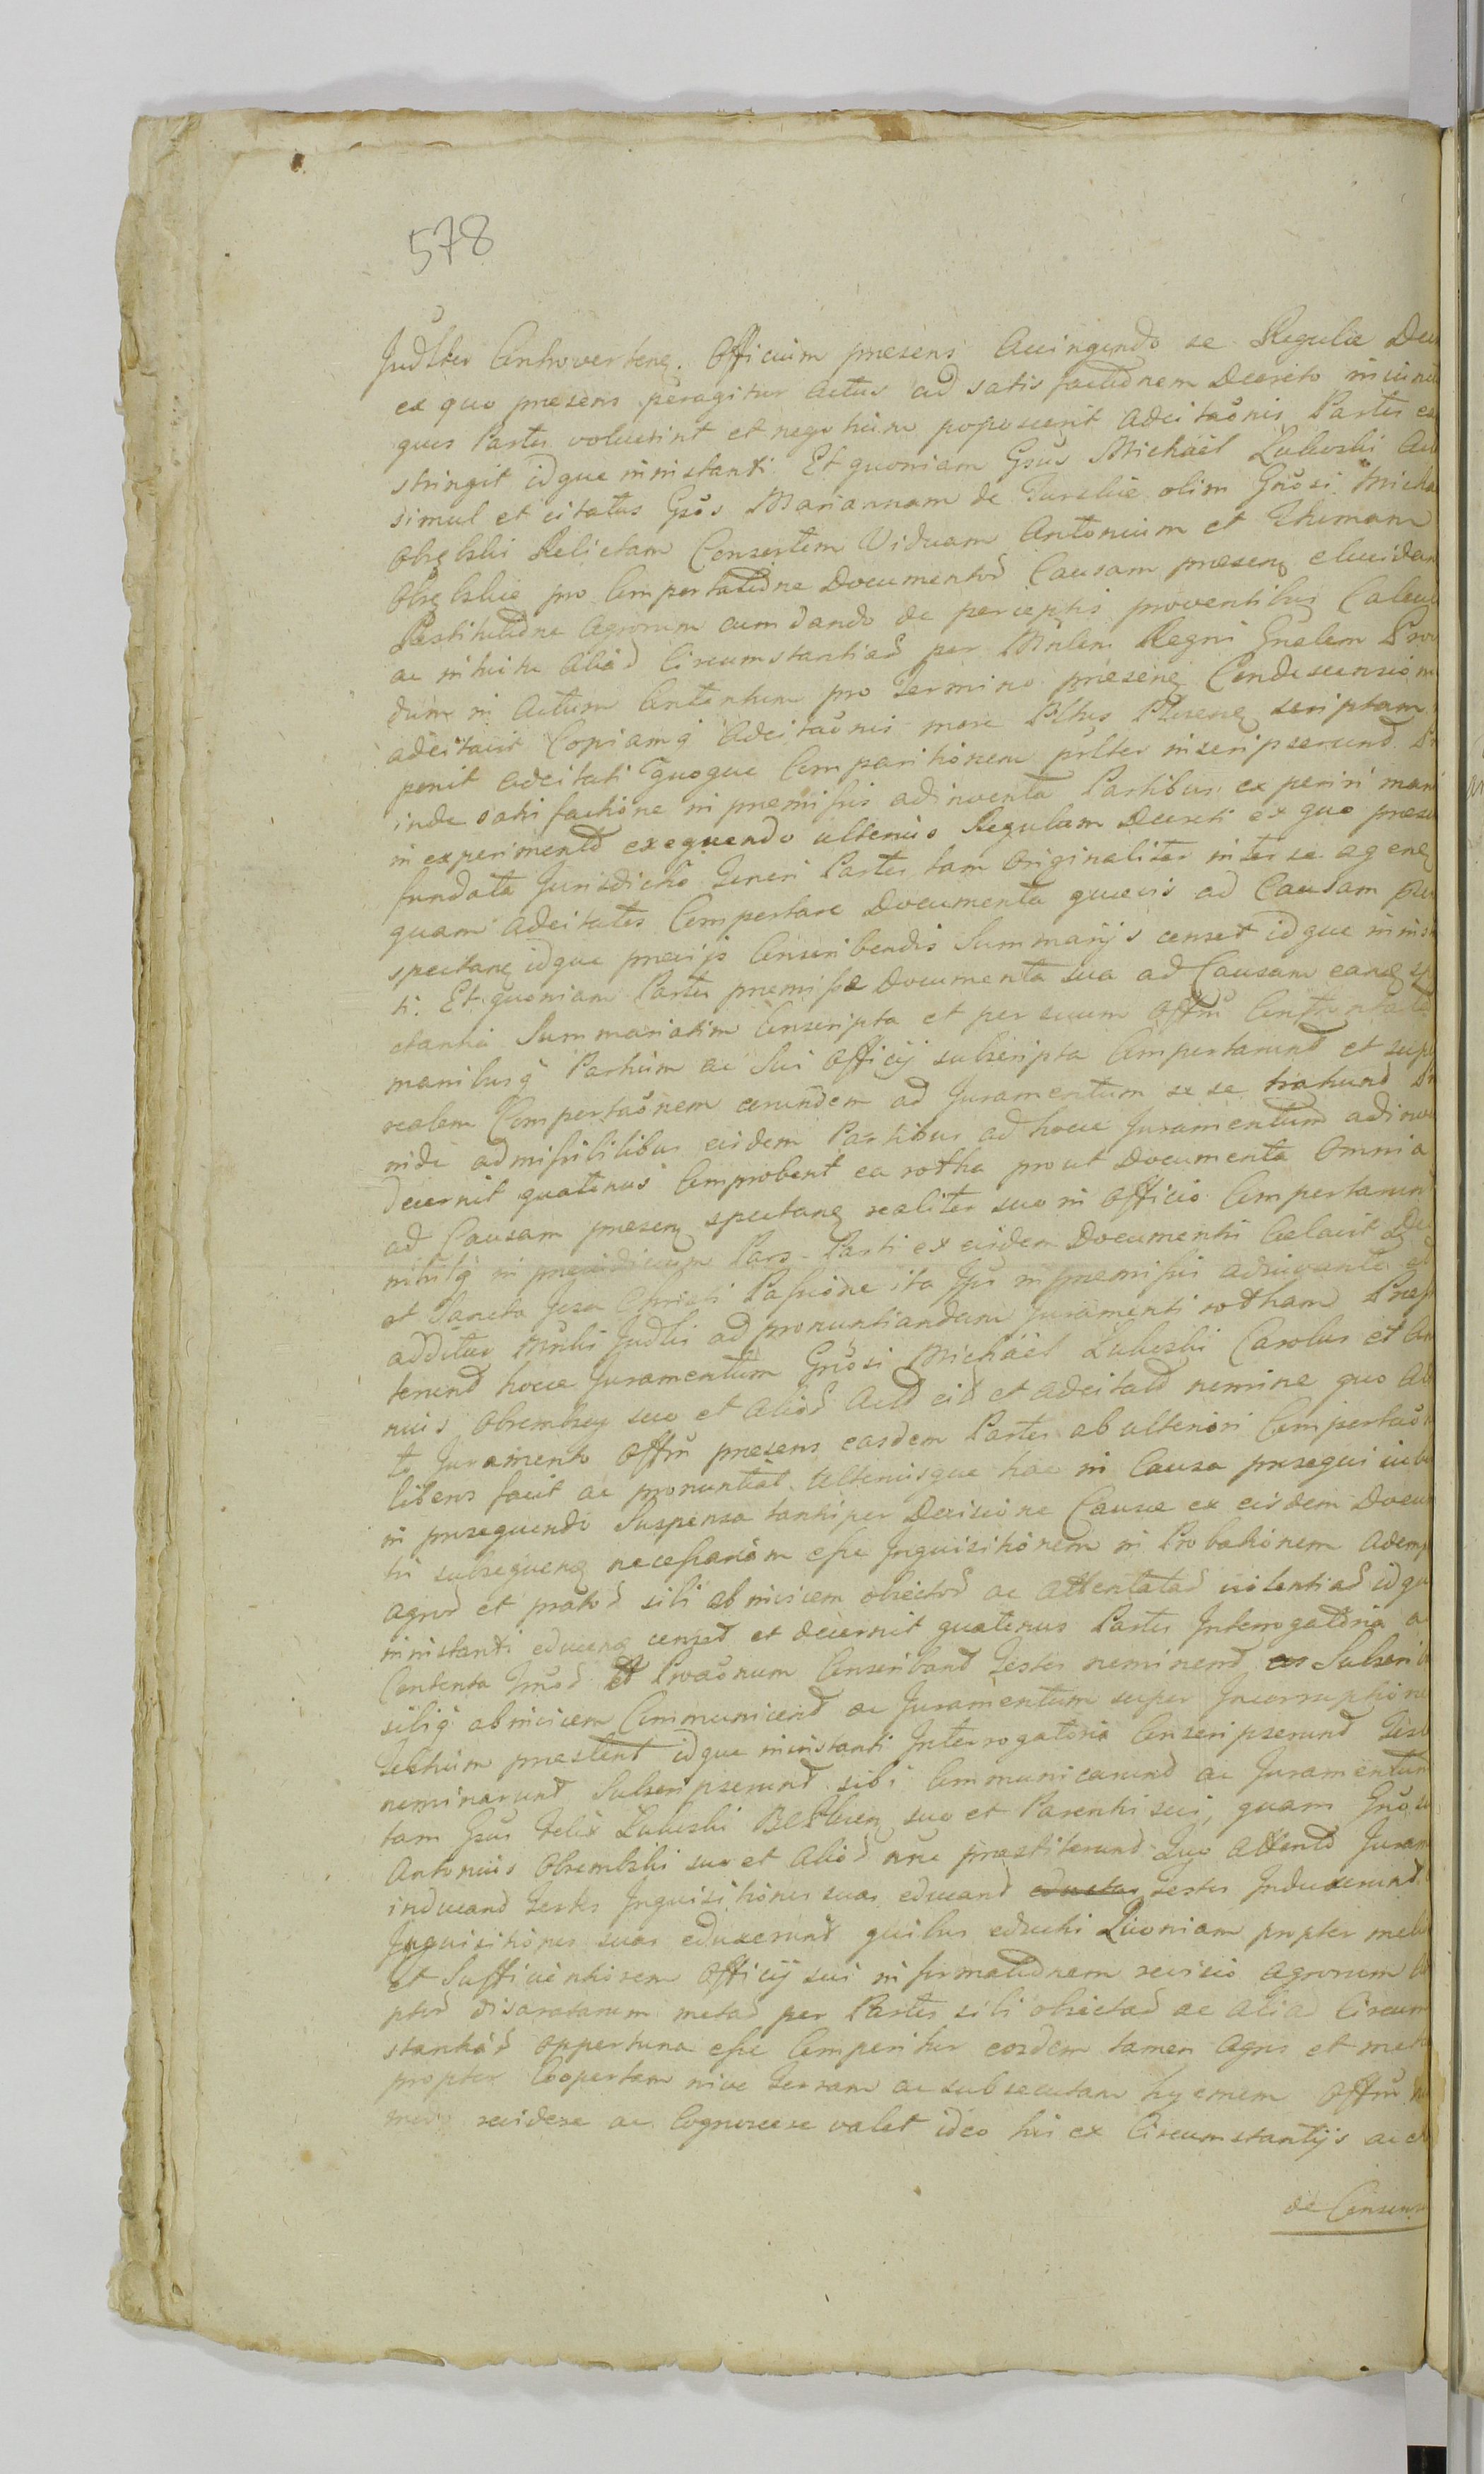 578
Judlter Controverteng. Officium praesens Accingendo se Regulae De
ex quo praesens peragitur Actus ad satis factionem Decreto iniun
quas Partes voluerint et negotium poposcerit Adcitaonis Partes
stringit idque ininstanti. Et quoniam Gsus Michäel Lubeski
simul et citatus Gsos Mariannam de Turskie olim Gnosi Micha
Obrębski Relictam Consortem Viduam Antonium et Thomam
Obrębskie pro Comportatione Documentor Causam praeseng elucidan
Restitutione Agrorum eum dando de perceptis proventibus Calcu
ac intuitu aliad Circumstantiad per Minlem Regni Gnalem
dum in Actum Contentum pro Termino praeseng Condescension
adcitavit Copiamq Adcitaonis more Pltus scriptam
ponit adcitati quoque Comparitionem prlter inscripserund
inde satisfactione in praemissis adinventa Partibus experiri man
in experimento exequendo ulterius Regulam Decreti ex quo praes
fundata Jurisdictio Teneri Partes tam Originaliter inter se ageng
quam Adcitatas Comportare Documenta quaevis ad Causam
spectang idque praevijs Conscribendis Summarijs censet idque inins
ti. Et quoniam Partes praemissae Documenta sua ad Causam eang
ctantia Summariatim Conscripta et per suum Offm
manibusq Partium ac Sui Officij subscripta Comportarund et sup
realem Comportaonem eorundem ad Juramentum se se trahund
inde admissibilibus eisdem Partibus ad hocce Juramentum adinv
decernit quatenus Comprobent ea rotha prout Documenta Omnia
ad Causam praeseng spectang realiter suo in Officio Comportarun
nihilq in praeiudicium Pars Parti ex eisdem Documentis Celavit
et Sancta Jesu Christi Passione ita Jpsi in praemissis adiuvante
additur Minlis Judlis ad pronuntiandam Juramenti rotham
terund hocce Juramentum Gnosi Michäel Lubeski Carolus et
nius Obrembscy suo et Aliod Actd cit et Adcitatd nomine quo
to Juramento Offm praesens easdem Partes ab ulteriori Comportaon
liberas facit ac pronuntiat. Ulteriusque hac in Causa prosequi iub
in prosequendo Suspensa tantiper Decisione Causae ex eisdem Docum
tis subsequeng necessariam esse Inquisitionem in Probationem
agrod et pratod sibi ab invicem obiectod ac Attentatad violentiad idqu
ininstanti educeng censet et decernit quatenus Partes Interrogatoria
Contenta Et Conscribant Testes nominent Subscri
sibiq ab invicem Communicent ac Juramentum super Incorruptione
Testium praestent idque ininstanti Interrogatoria Conscripserund Test
nominarund Subscripserund sibi Communicarund ac Juramentum
tam Gsus Felix Lubeski suo et Parentis sui, quam
Antonius Obrembski suo et Aliod nne praestiterund Quo Attento Juram
inducand Testes Inquisitiones suas educand eductas Testes Induxerund
Inquisitiones suas eduxerund quibus eductis Quoniam propter
et Sufficientiorem Officij sui informationem revisio Agrorum
ptod disaratarum metad per Partes sibi obiectad ac Aliad Circum
stantiad opportuna esse Comperitur eosdem tamen Agros et met
propter Coopertam nive Terram ac subsecutam hyemem Offm
modo revidere ac Cognoscere valet ideo his ex Circumstantijs
de Consens